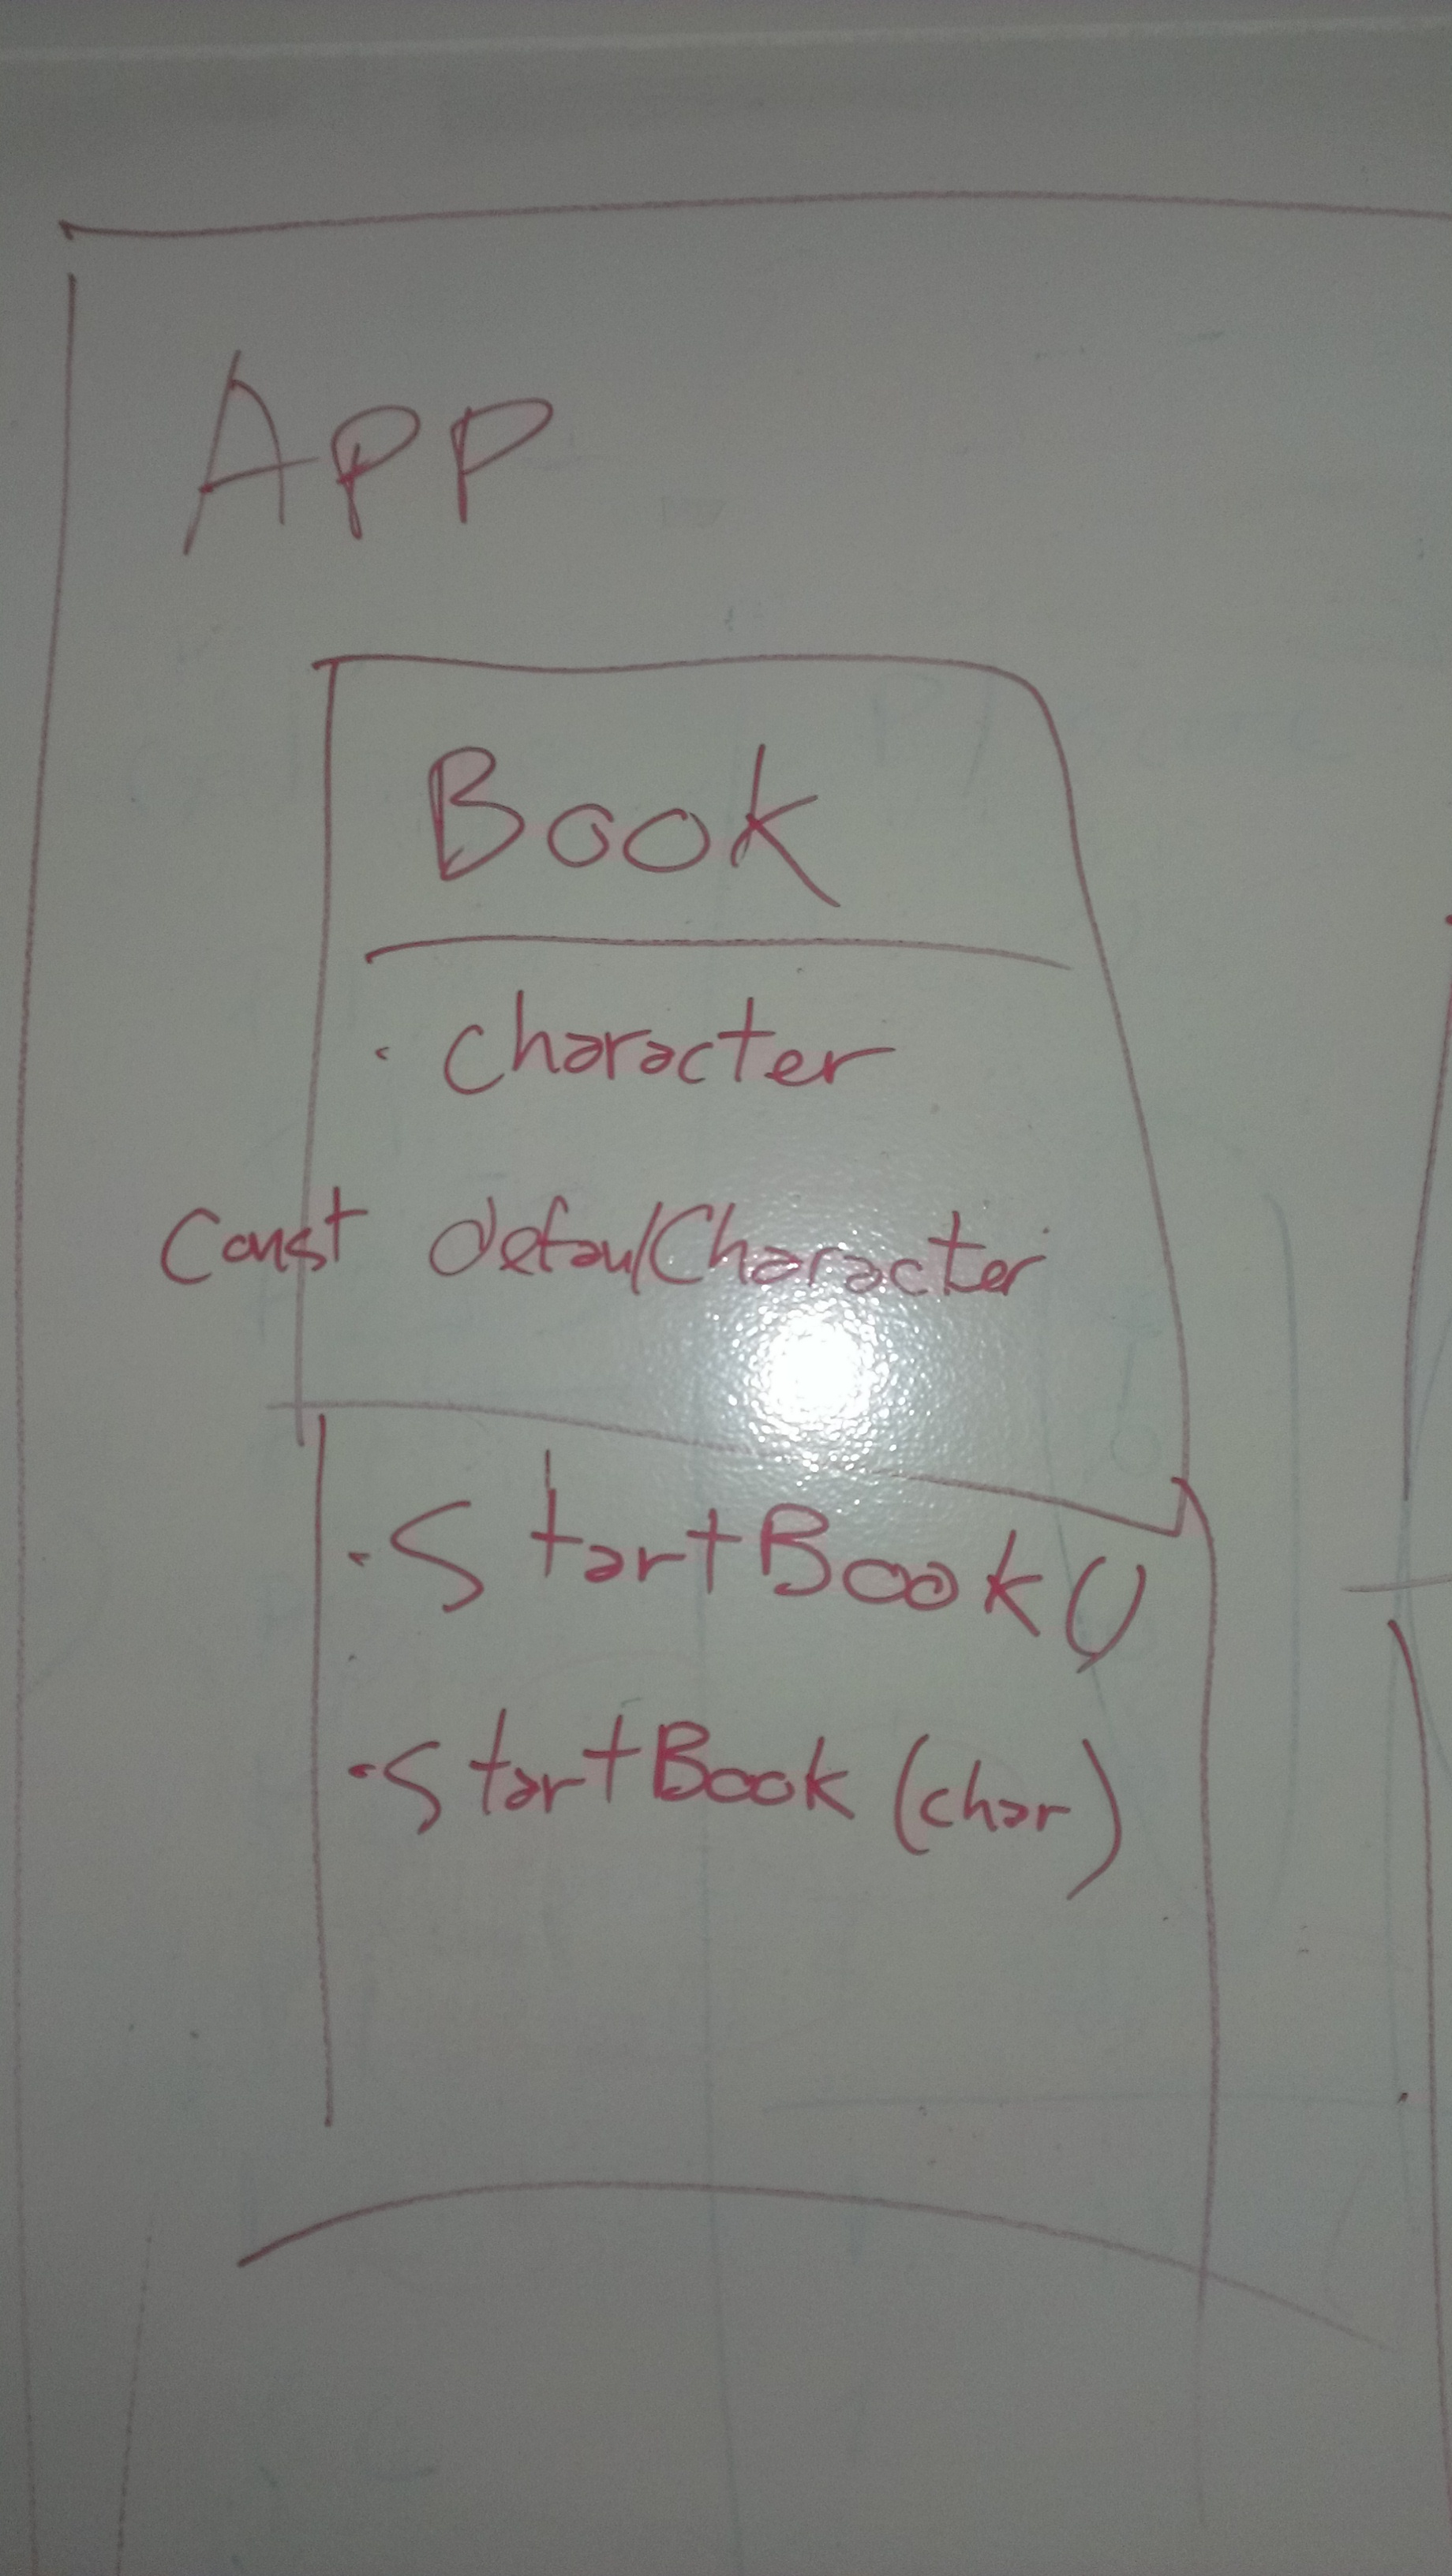 App
Book
· character
const defaulCharacter
· StartBook()
· StartBook (char)